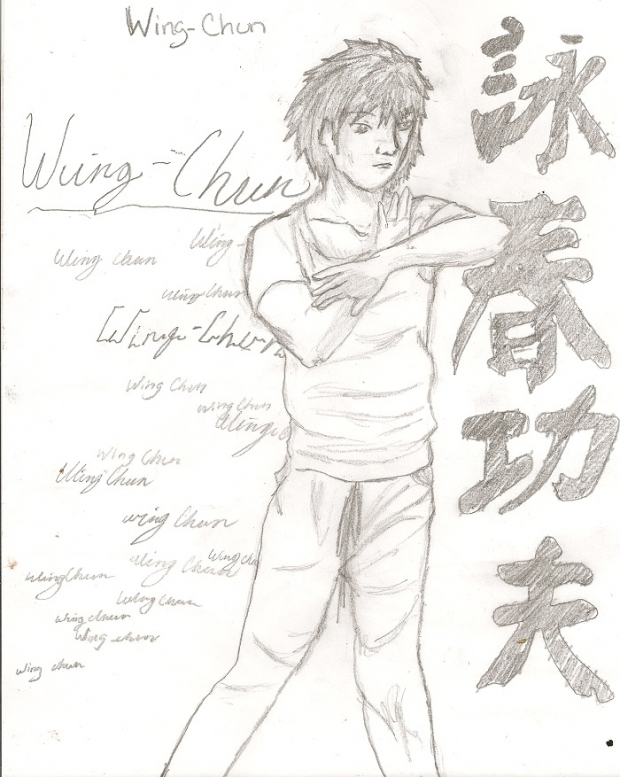 Wing-Chun
Wing-Chun
Wing Chun
Wing-
Wing Chun
Wing-Chun
Wing Chun
Wing Chun
Wing
Wing Chun
Wing Chun
wing Chun
Wing Chun
Wing Chu
Wing Chun
Wing Chun
wing chun
Wing chun
wing chun
詠春功夫